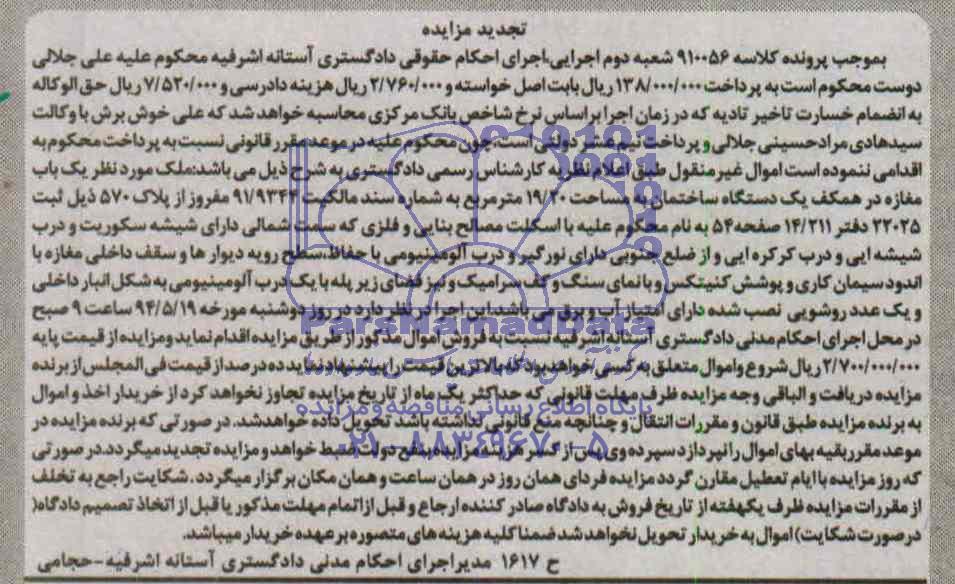 تجدید مزایده
بموجب پرونده کلاسه ۹۱۰۰۵۶ شعبه دوم اجرایی،اجرای احکام حقوقی دادگستری آستانه اشرفیه محکوم علیه علی جلالی
دوست محکوم است به پرداخت ۱۳۸/۰۰۰/۰۰۰ ریال بابت اصل خواسته و ۲/۷۶۰/۰۰۰ ریال هزینه دادرسی و ۷/۵۲۰/۰۰۰ ریال حق الوکاله
به انضمام خسارت تاخیر تادیه که در زمان اجرا براساس نرخ شاخص بانک مرکزی محاسبه خواهد شد که علی خوش برش با وکالت
سیدهادی مرادحسینی جلالی و پرداخت نیم عشر دولتی است،چون محکوم علیه در موعد مقرر قانونی نسبت به پرداخت محکوم به
اقدامی ننموده است اموال غیر منقول طبق اعلام نظریه کارشناس رسمی دادگستری به شرح ذیل می باشد:ملک مورد نظر یک باب
مغازه در همکف یک دستگاه ساختمان به مساحت ۱۹/۲۰ مترمربع به شماره سند مالکیت ۹۱/۹۳۴۴ مفروز از پلاک ۵۷۰ ذیل ثبت
۲۲۰۲۵ دفتر ۱۴/۲۱۱ صفحه ۵۴ به نام محکوم علیه با اسکلت مصالح بنایی و فلزی که سمت شمالی دارای شیشه سکوریت و درب
شیشه ایی و درب کرکره ایی و از ضلع جنوبی دارای نورگیر و درب آلومینیومی با حفاظ،سطح رویه دیوار ها و سقف داخلی مغازه با
اندود سیمان کاری و پوشش کنیتکس و با نمای سنگ و کف سرامیک و نیز فضای زیر پله با یک درب آلومینیومی به شکل انبار داخلی
و یک عدد روشویی نصب شده دارای امتیاز آب و برق می باشد؛این اجرا در نظر دارد در روز دوشنبه مورخه ۹۴/۵/۱۹ ساعت ۹ صبح
در محل اجرای احکام مدنی دادگستری آستانه اشرفیه نسبت به فروش اموال مذکور از طریق مزایده اقدام نماید ومزایده از قیمت پایه
۲/۷۰۰/۰۰۰/۰۰۰ ریال شروع واموال متعلق به کسی خواهد بود که بالاترین قیمت را پیشنهاد نماید.ده درصد از قیمت فی المجلس از برنده
مزایده دریافت و الباقی وجه مزایده ظرف مهلت قانونی که حداکثر یک ماه از تاریخ مزایده تجاوز نخواهد کرد از خریدار اخذ و اموال
به برنده مزایده طبق قانون و مقررات انتقال و چنانچه منع قانونی نداشته باشد تحویل داده خواهدشد. در صورتی که برنده مزایده در
موعد مقرر بقیه بهای اموال را نپردازد سپرده وی پس از کسر هزینه مزایده بنفع دولت ضبط خواهد و مزایده تجدید میگردد.در صورتی
که روز مزایده با ایام تعطیل مقارن گردد مزایده فردای همان روز در همان ساعت و همان مکان برگزار میگردد.شکایت راجع به تخلف
از مقررات مزایده ظرف یکهفته از تاریخ فروش به دادگاه صادر کننده ارجاع و قبل ازاتمام مهلت مذکور یا قبل از اتخاذ تصمیم دادگاه(
در صورت شکایت) اموال به خریدار تحویل نخواهد شد ضمنا کلیه هزینه های متصوره بر عهده خریدار میباشد.
ح ۱۶۱۷ مدیراجرای احکام مدنی دادگستری آستانه اشرفیه-حجامی
ParsNamadData
پایگاه اطلاع رسانی مناقصه و مزایده
۰۲۱-۸۸۳۴۹۶۷۰-۵